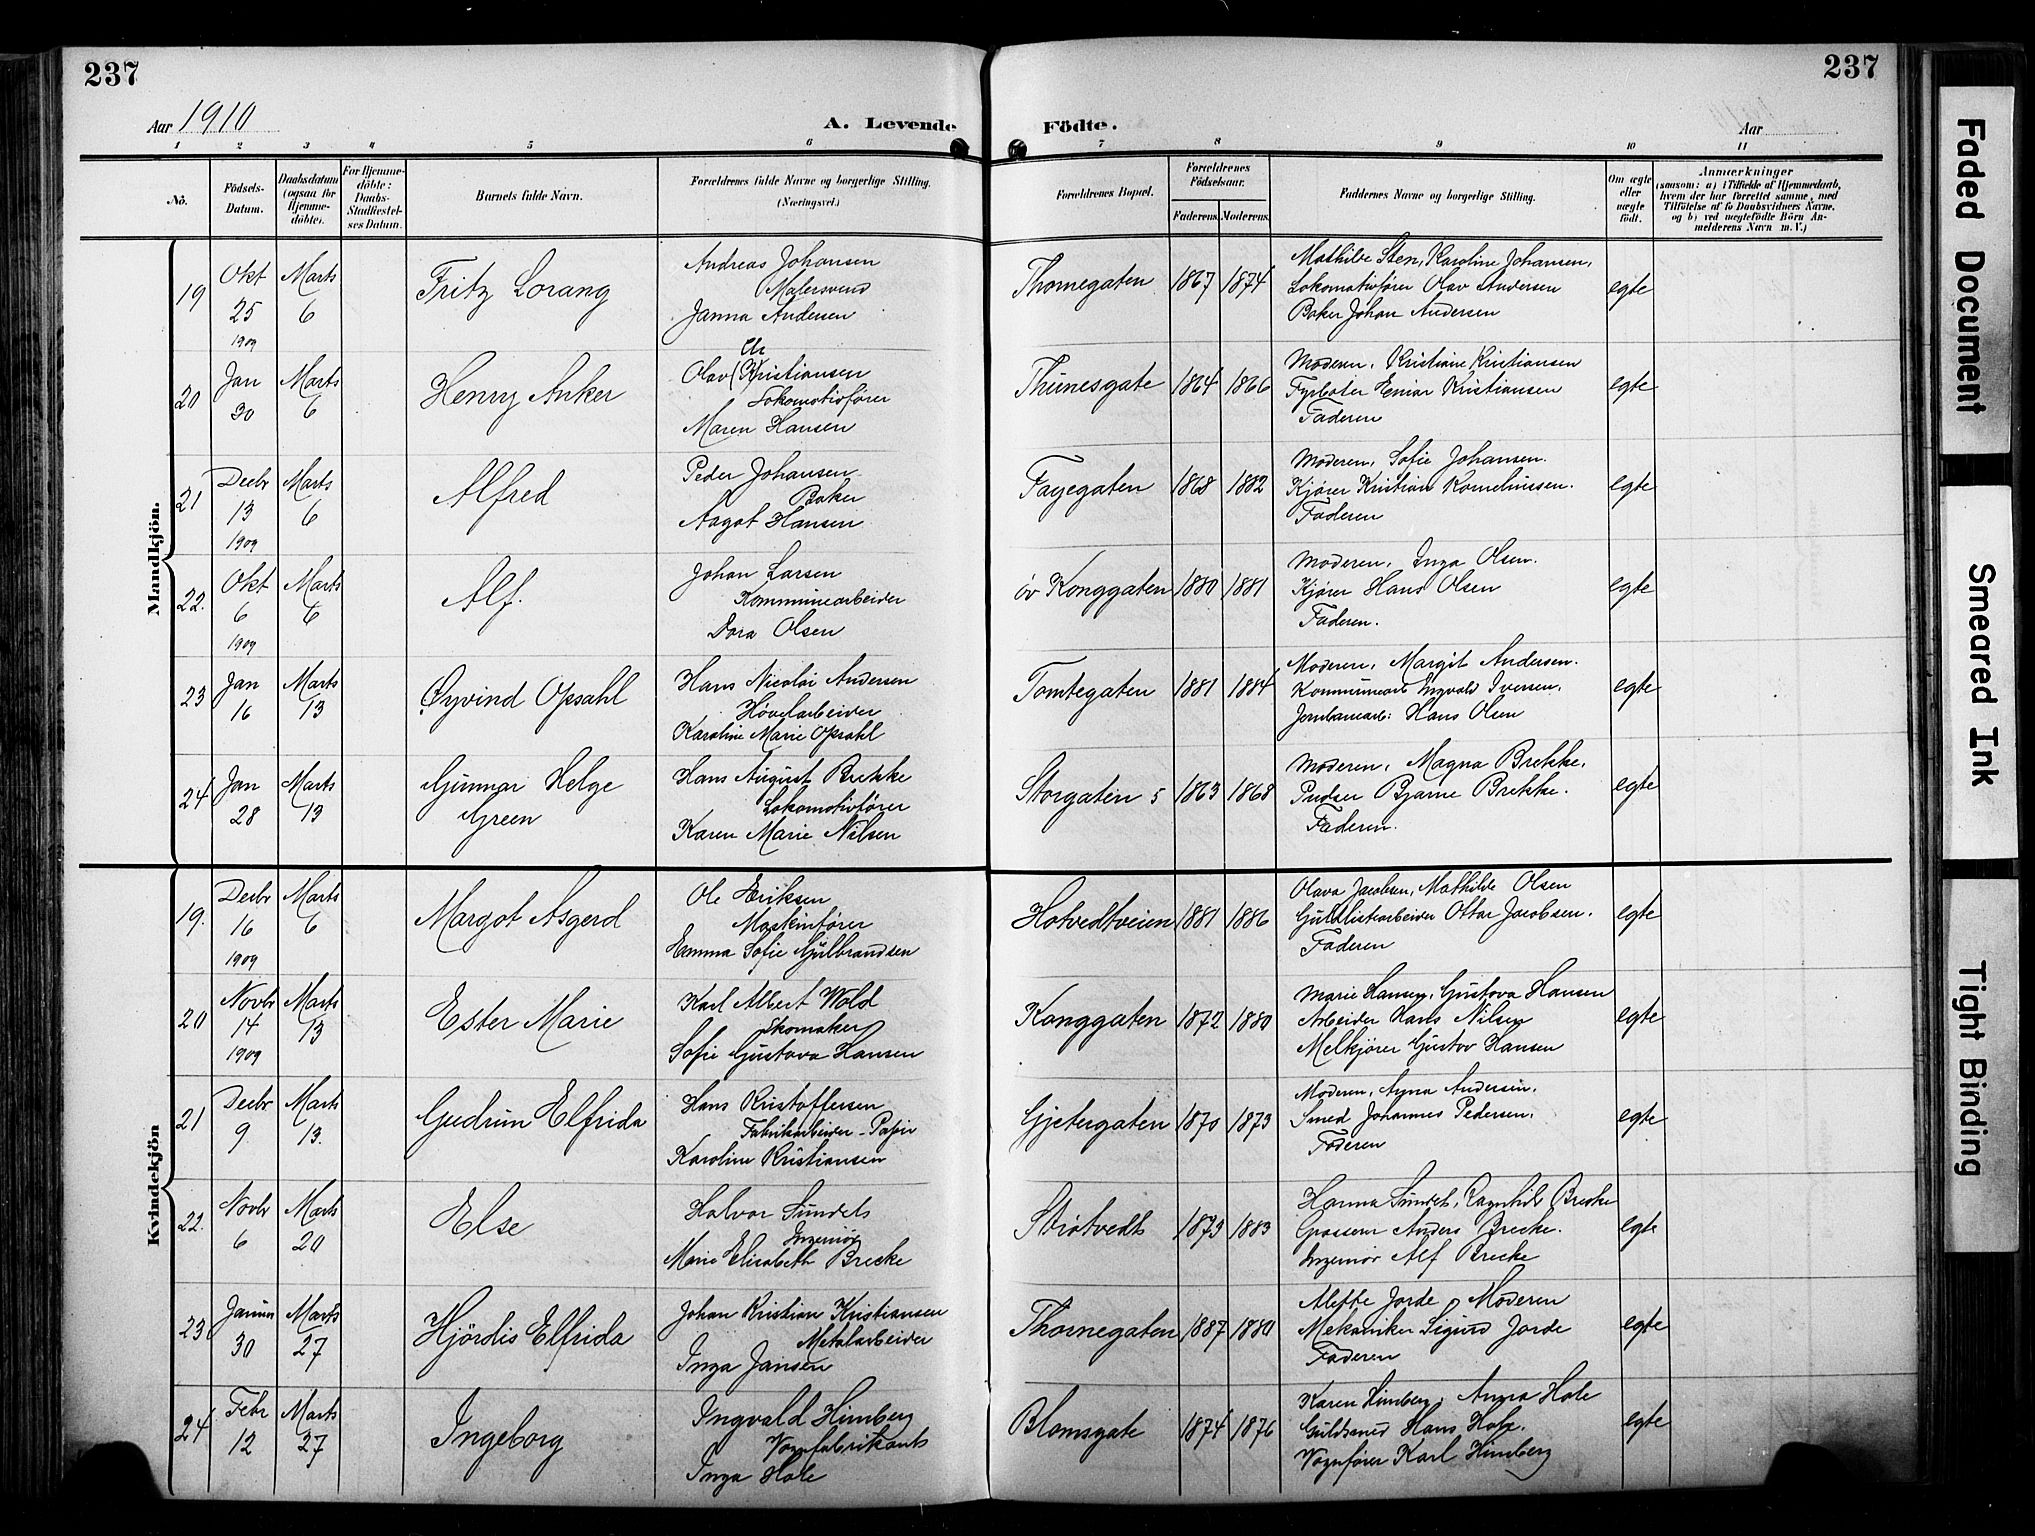 237
237
Aar 1910
A. Levende Födte.
Aar
1 2 3 4 5 6 7 8 9 10 11
No.
Födsels-Datum.
Daabsdatum (ogsaa for Hjemme-döbte).
For Hjemme-döbte: Daabs-Stadfæstel-ses Datum.
Barnets fulde Navn.
Forældrenes fulde Navne og borgerlige Stilling. (Næringsvei.)
Forældrenes Bopæl.
Forældrenes Födselsaar.
Faderens. Moderens.
Faddernes Navne og borgerlige Stilling.
Om ægte eller uægte födt.
Anmærkninger
(saasom: a) i Tilfælde af Hjemmedaab, hvem der har forrettet samme, med Tilföielse af to Daabsvidners Navne, og b) ved uægtefödte Börn An-melderens Navn m. V.)
Mandkjön.
19 Okt 25 1909 Marts 6 Fritz Lorang
Andreas Johansen
Malersvend
Janna Andersen
Thornegaten 1867 1874
Mathilde Sten, Karoline Johansen,
Lokomotivfører Olav Andersen
Baker Johan Andersen
egte
20 Jan 30 Marts 6 Henry Anker
Ch
Olav (K)ristiansen
Lokomotivfører
Maren Hansen
Thunesgate 1864 1866
Moderen, Kristiane Kristiansen
Fyrbøter Einar Kristiansen
Faderen
egte
21 Decbr 13 1909 Marts 6 Alfred
Peder Johansen
Baker
Aagot Hansen
Fayegaten 1868 1882
Moderen, Sofie Johansen.
Kjører Kristian Kornelinssen.
Faderen
egte
22. Okt 6 1909 Marts 6 Alf.
Johan Larsen
Kommunearbeider
Dora Olsen
öv Konggaten 1880 1881
Moderen, Inga Olsen.
Kjører Hans Olsen
Faderen.
egte
23 Jan 16 Marts 13 Øyvind Opsahl
Hans Nicolai Andersen
Høvelarbeider
Karoline Marie Opsahl
Tomtegaten 1881 1884
Moderen, Margit Andersen.
Kommunearb Ingvald Iversen,
Jernbanearb: Hans Olsen
egte
24 Jan 28 Marts 13 Gunnar Helge Green
Hans August Brekke
Lokomotivfører
Karen Marie Nilsen
Storgaten 5 1863 1868
Moderen, Magna Brekke,
Pudser Bjarne Brekke.
Faderen.
egte
Kvindekjön
19. Decbr 16 1909 Marts 6 Margot Asgerd
Ole Eriksen
Maskinfører
Emma Sofie Gulbrandsen
Hotvedtveien 1881 1886
Olava Jacobsen, Mathilde Olsen
Guldlistarbeider Ottar Jacobsen.
Faderen
egte
20 Novbr 14 1909 Marts 13 Ester Marie
Karl Albert Wold
Skomaker
Sofie Gustava Hansen
Konggaten 1872 1880
Marie Hansen, Gustava Hansen
Arbeider Hans Nilsen
Melkjører Gustav Hansen
egte
21 Decbr 9 Marts 13. Gudrun Elfrida
Hans Kristoffersen
Fabrikarbeider - Papir
Karoline Kristiansen
Gjetergaten 1870 1873
Moderen, Agna Andersen.
Smed Johannes Pedersen.
Faderen
egte
22. Novbr 6 Marts 20 Else
Halvor Sundets
Ingeniør
Marie Elisabeth Brecke
Strøtvedt 1873 1883
Hanna Sundet, Ragnhild Brecke
Grosserer Anders Brecke.
Ingeniør Alf Brecke
egte
23 Januar 30 Marts 27 Hjördis Elfrida
Johan Kristian Kristiansen
Metalarbeider
Inga Jansen
Thornegaten 1887 1880
Alette Jorde, Moderen
Mekaniker Sigurd Jorde
Faderen
egte
24 Febr 12 Marts 27 Ingeborg
Ingvald Himberg
Vognfabrikant
Inga Hole
Blomsgate 1874 1876
Karen Himberg, Anna Hole
Guldsmed Hans Hole.
Vognfører Karl Himberg
egte
Faded Document
Smeared Ink
Tight Binding